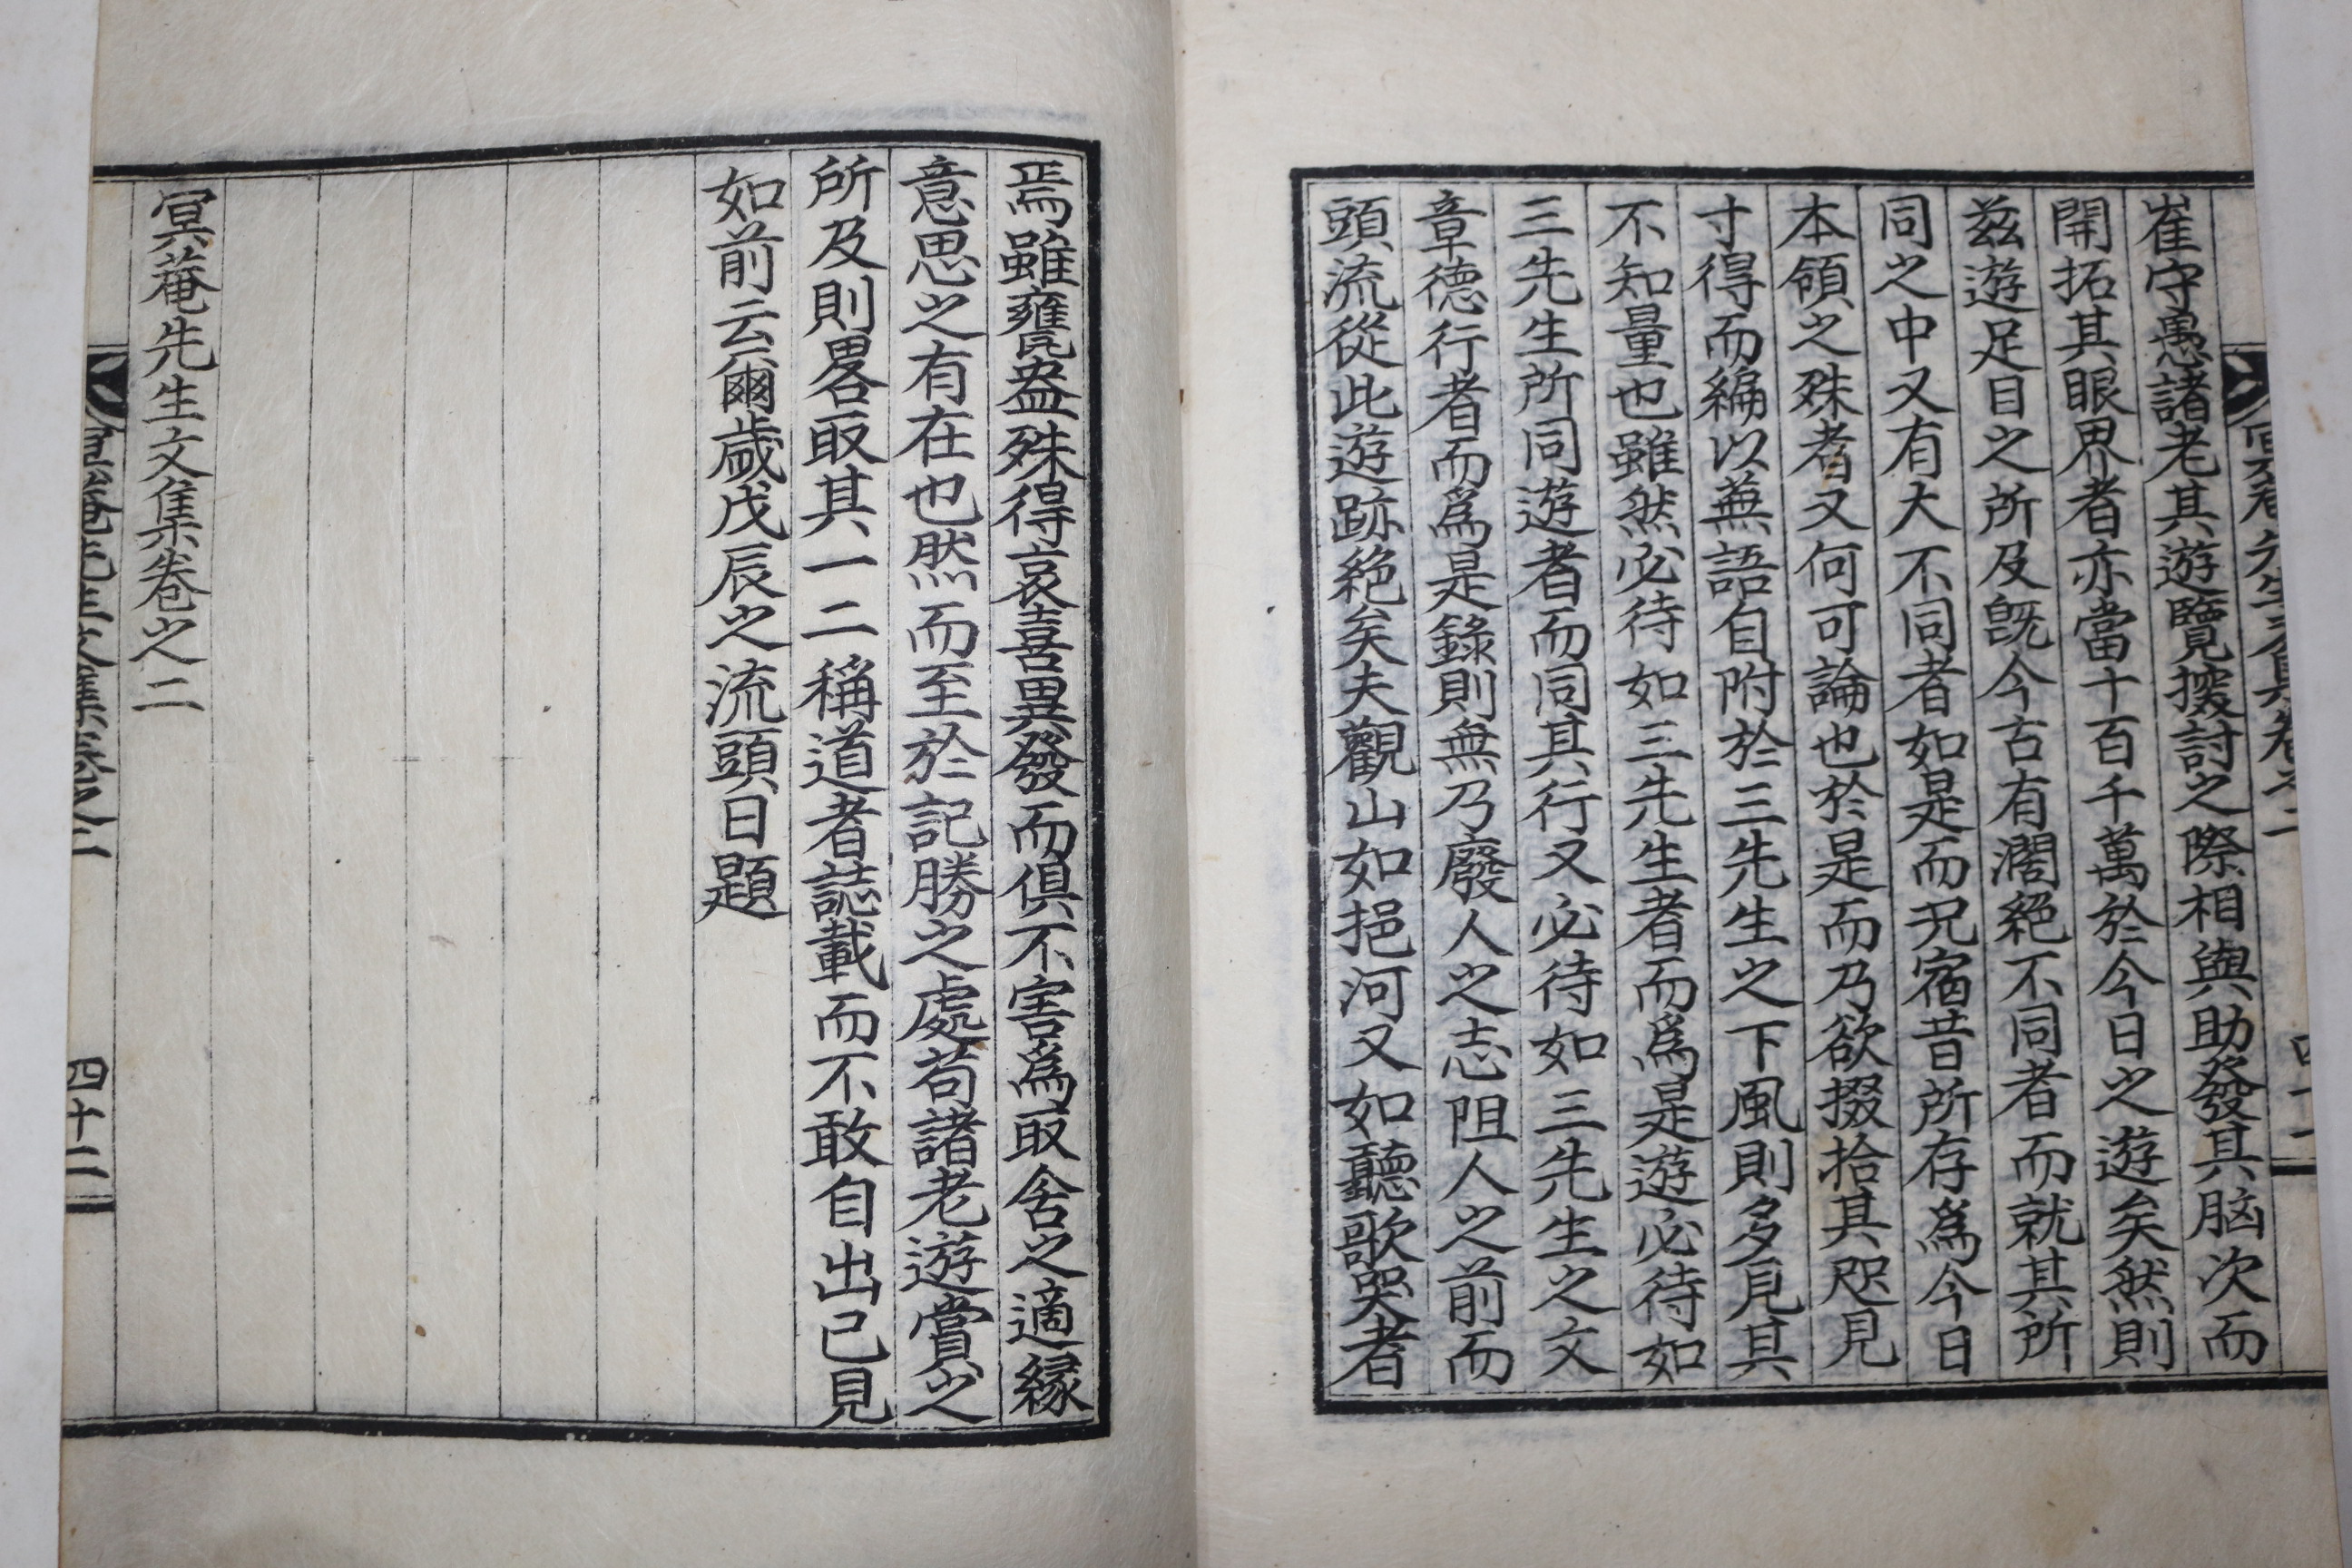 崔守愚諸老其遊覽搜討之際相與助發其脑次而
開拓其眼界者亦當十百千萬於今日之遊矣然則
玆遊足目之所及旣今古有濶絕不同者而就其所
同之中又有大不同者如是而况宿昔所存爲今日
本領之殊者又何可論也於是而乃欲掇拾其咫見
寸得而編以蕪語自附於三先生之下風則多見其
不知量也雖然必待如三先生者而爲是遊必待如
三先生所同遊者而同其行又必待如三先生之文
章德行者而爲是錄則無乃廢人之志阻人之前而
頭流從此遊跡絶矣夫觀山如挹河又如聽歌哭者
焉雖甕盎殊得哀喜異發而俱不害爲取舍之適緣
意思之有在也然而至於記勝之處苟諸老遊賞之
所及則畧取其一二稱道者誌載而不敢自出己見
如前云爾歲戊辰之流頭日題
冥菴先生文集卷之二
四十二